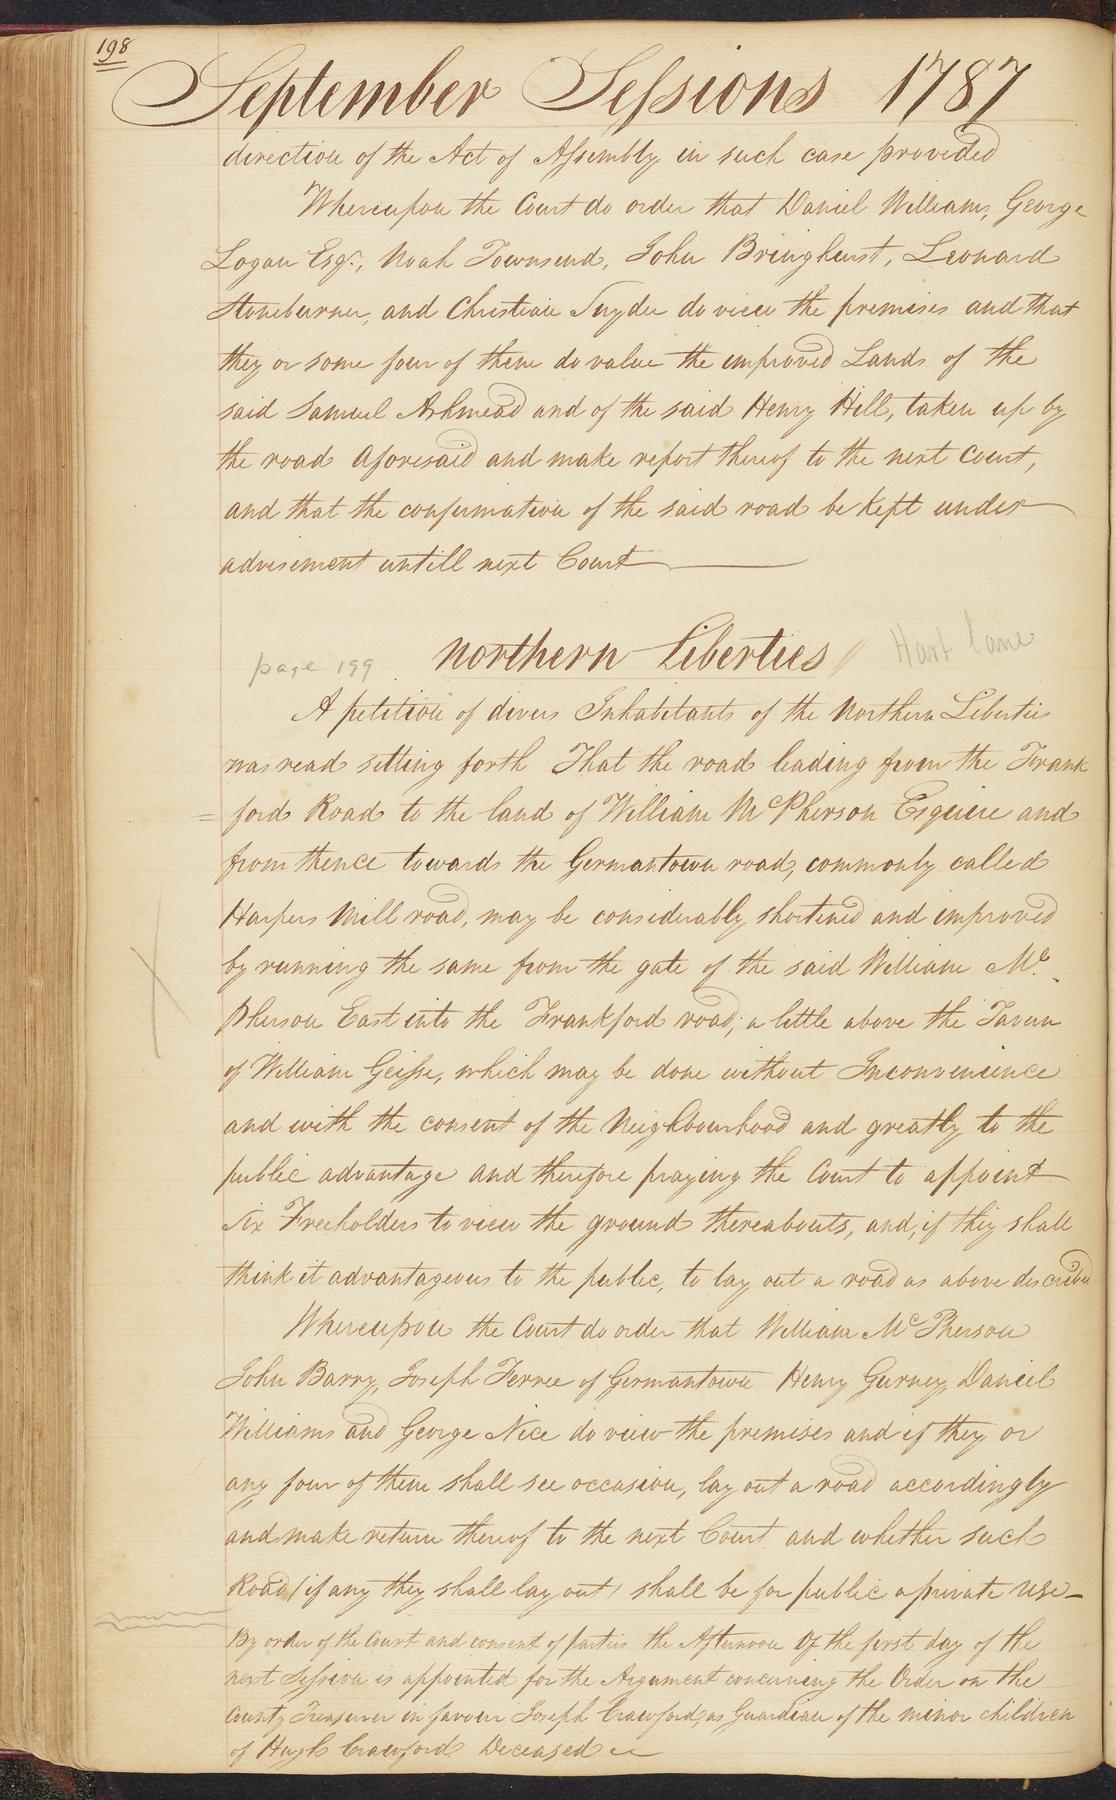 198
September Sessions 1787
direction of the Act of Assembly in such case provided
Whereupon the Court do order that Daniel Williams, George
Logan Esqr., Noah Townsend, John Bringhurst, Leonard
Stoneburner, and Christian Snyder do view the premises and that
they or some four of them do value the improved Lands of the
said Samuel Ashmead and of the said Henry Hill, taken up by
the road aforesaid and make report thereof to the next Court,
and that the confirmation of the said road be kept under
advisement untill next Court
page 199 Northern Liberties Hart Lane
A petition of divers Inhabitants of the Northern Liberties
was read setting forth That the road leading from the Frank
= ford Road to the land of William McPherson Esquire and
from thence towards the Germantown road, commonly called
Harpers Mill road, may be considerably shortened and improved
by running the same from the gate of the said William Mc.
Pherson East into the Frankford road, a little above the Tavern
of William Geisse, which may be done without Inconvenience
and with the consent of the Neighbourhood and greatly to the
public advantage and therefore praying the Court to appoint
six Freeholders to view the ground thereabouts, and, if they shall
think it advantageous to the public, to lay out a road as above described
Whereupon the Court do order that William McPherson
John Barry, Joseph Ferree of Germantown Henry Gurney, Daniel
Williams and George Nice do view the premises and if they or
any four of them shall see occasion, lay out a road accordingly
and make return thereof to the next Court and whether such
Road (if any they shall lay out) shall be for public or private use
By order of the Court and consent of parties the Afternoon Of the first day of the
next Session is appointed for the Argument concerning the Order on the
County Treasurer in favour Joseph Crawford, as Guardian of the minor children
of Hugh Crawford Deceased